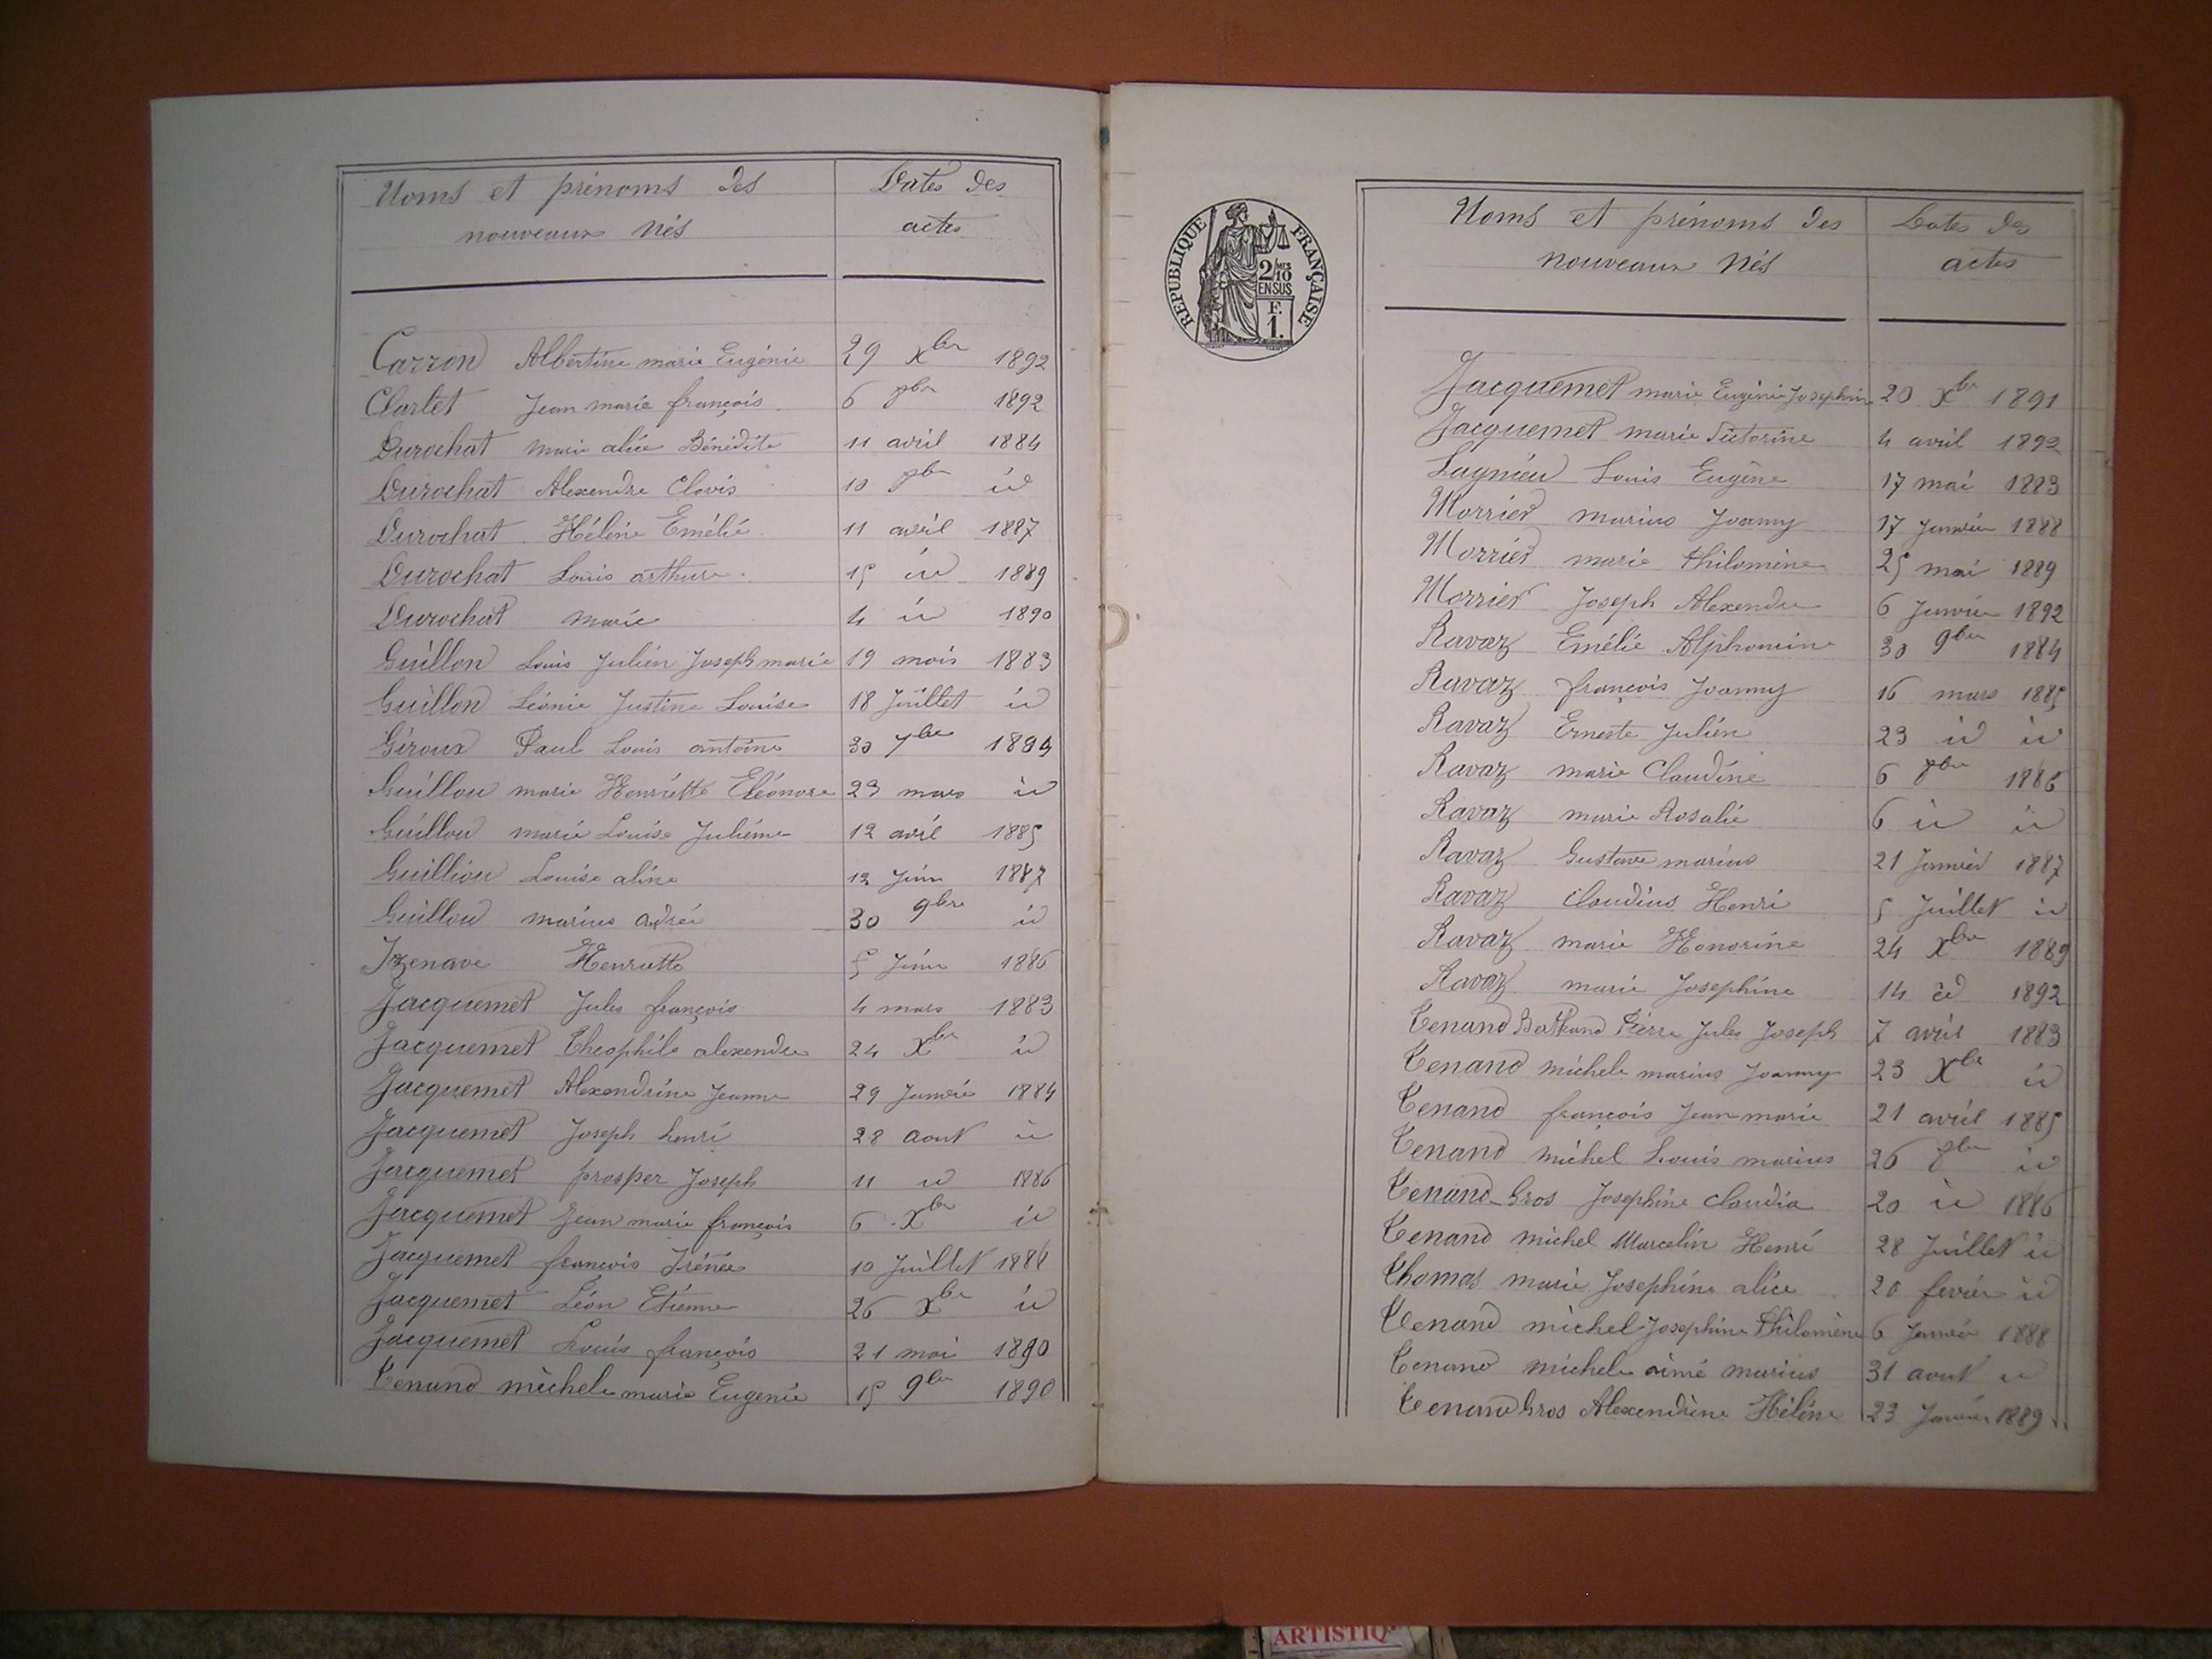 Noms et prénoms des
nouveaux nés
Dates des
actes
Carron Albertine marie Eugénie 29 Xbre 1892
Clartet Jean marie françois 6 8bre 1892
Durochat marie alice Bénédite 11 avril 1884
Durochat Alexendre Clovis 10 8bre id
Durochat Hélène Emélie 11 avril 1887
Durochat Louis arthur 15 id 1889
Durochat marie 4 id 1890
Guillon Louis Julien Joseph marie 19 mois 1883
Guillon Léonie Justine Louise 18 Juillet id
Giroux Paul Louis antoine 30 7bre 1894
Guillou marie Henriette Eléonore 23 mars id
Guillou marie Louise Julienne 12 avril 1885
Guilliou Louise aline 12 Juin 1887
Guillou marius adrée 30 9bre id
Izenave Henriette 5 Juin 1886
Jacquemet Jules françois 4 mars 1883
Jacquemet Theophile alexendre 24 Xbre id
Jacquemet Alexendrine Jeanne 29 Janvié 1884
Jacquemet Joseph henri 28 aout id
Jacquemet prosper Joseph 11 id 1886
Jacquemet Jean marie françois 6 Xbre id
Jacquemet francois Irénée 10 Juillet 1888
Jacquemet Léon Etienne 26 Xbre id
Jacquemet Louis françois 21 mai 1890
Tenand michel marie Eugenie 15 9bre 1890
REPUBLIQUE FRANÇAISE
2/10 MES
EN SUS
F.
1.
Noms et prénoms des
nouveaux nés
Dates des
actes
Jacquemet marie Eugénie Josephine 20 Xbre 1891
Jacquemet marie Victorine 4 avril 1892
Lagnieu Louis Eugène 17 mai 1883
Morrier marius Joanny 17 Janvier 1888
Morrier marie philomène 25 mai 1889
Morrier Joseph Alexendre 6 Janvier 1892
Ravaz Emélie Alphonsine 30 9bre 1884
Ravaz françois Joanny 16 mars 1885
Ravaz Erneste Julien 23 id id
Ravaz marie Claudine 6 8bre 1886
Ravaz marie Rosalie 6 id id
Ravaz Gustave marius 21 Janvier 1887
Ravaz Claudius Henri 5 Juillet id
Ravaz marie Honorine 24 Xbre 1889
Ravaz marie Josephine 14 id 1892
Tenand Bertrand Pierre Jules Joseph 7 avril 1883
Tenand michel marius Joanny 23 Xbre id
Tenand françois Jean marie 21 avril 1885
Tenand michel Louis marius 26 8bre id
Tenand-Gros Josephine Claudia 20 id 1886
Tenand michel Marcelin Henri 28 Juillet id
Thomas marie Josephine alice 20 fevrier id
Tenand michel Josephine Philomène 6 Janvier 1888
Tenand michel aimé marius 31 aout id
Tenand Gros Alexendrine Hélène 23 Janvier 1889
ARTISTIQ